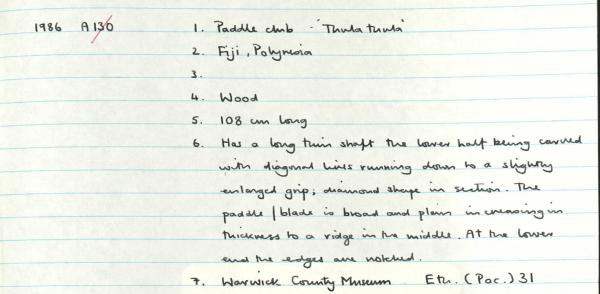 1986 A130 1. Paddle club - 'Thula thula'
2. Fiji, Polynesia
3.
4. Wood
5. 108 cm long
6. Has a long thin shaft the lower half being carved
with diagonal lines running down to a slightly
enlarged grip; diamond shape in section. The
paddle/blade is broad and plain increasing in
thickness to a ridge in the middle. At the lower
end the edges are notched.
7. Warwick County Museum Eth. (Pac.) 31